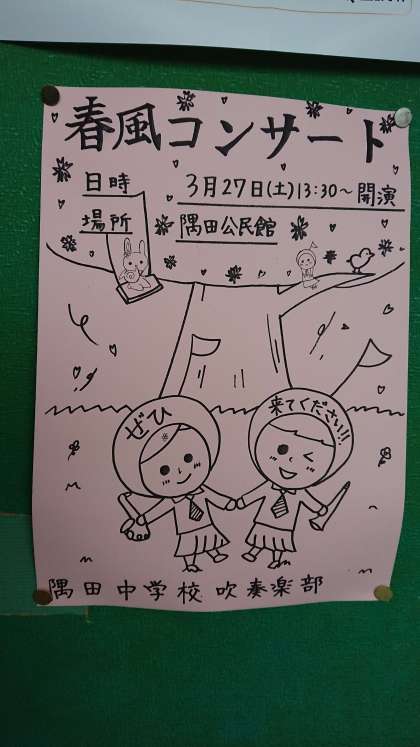 春風コンサート
日時 3月27日(土)13:30~開演
場所 隅田公民館
ぜひ
来てください!!!
隅田中学校吹奏楽部